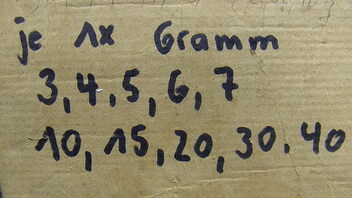 je 1x Gramm
3,4,5,6,7
10,15,20,30.40